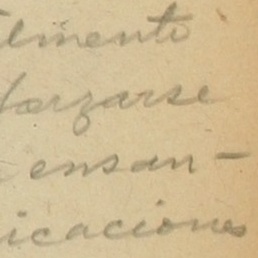 lmento
larzarse
ensan-
icaciones